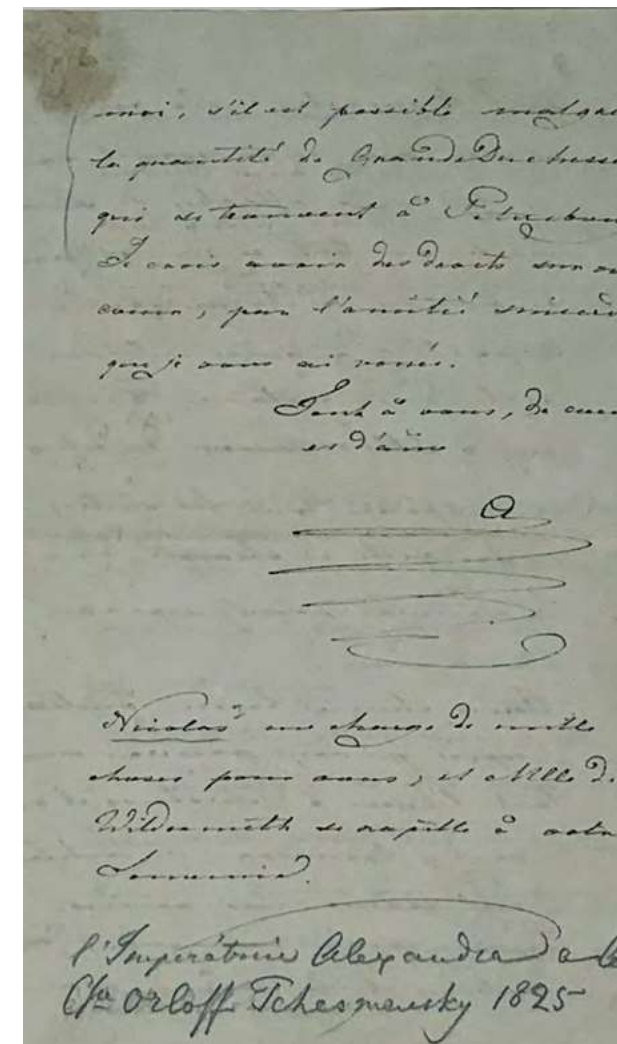 moi, s'il est possible malgré
la quantité de Grande Duchesse
qui se trouvent à Petersbour
Je crois avoir des droits sur vo
coeur, par l'amitié sincère
que je vous ai vouée.
Tout à vous, de coeu
et d'âme
A
Nicolas me charge de mille
choses pour vous, et Mlle de
Wildermeth se rapelle à votre
Souvenir.
l'Impératrice Alexandra a la
Csse Orloff Tchesmensky 1825